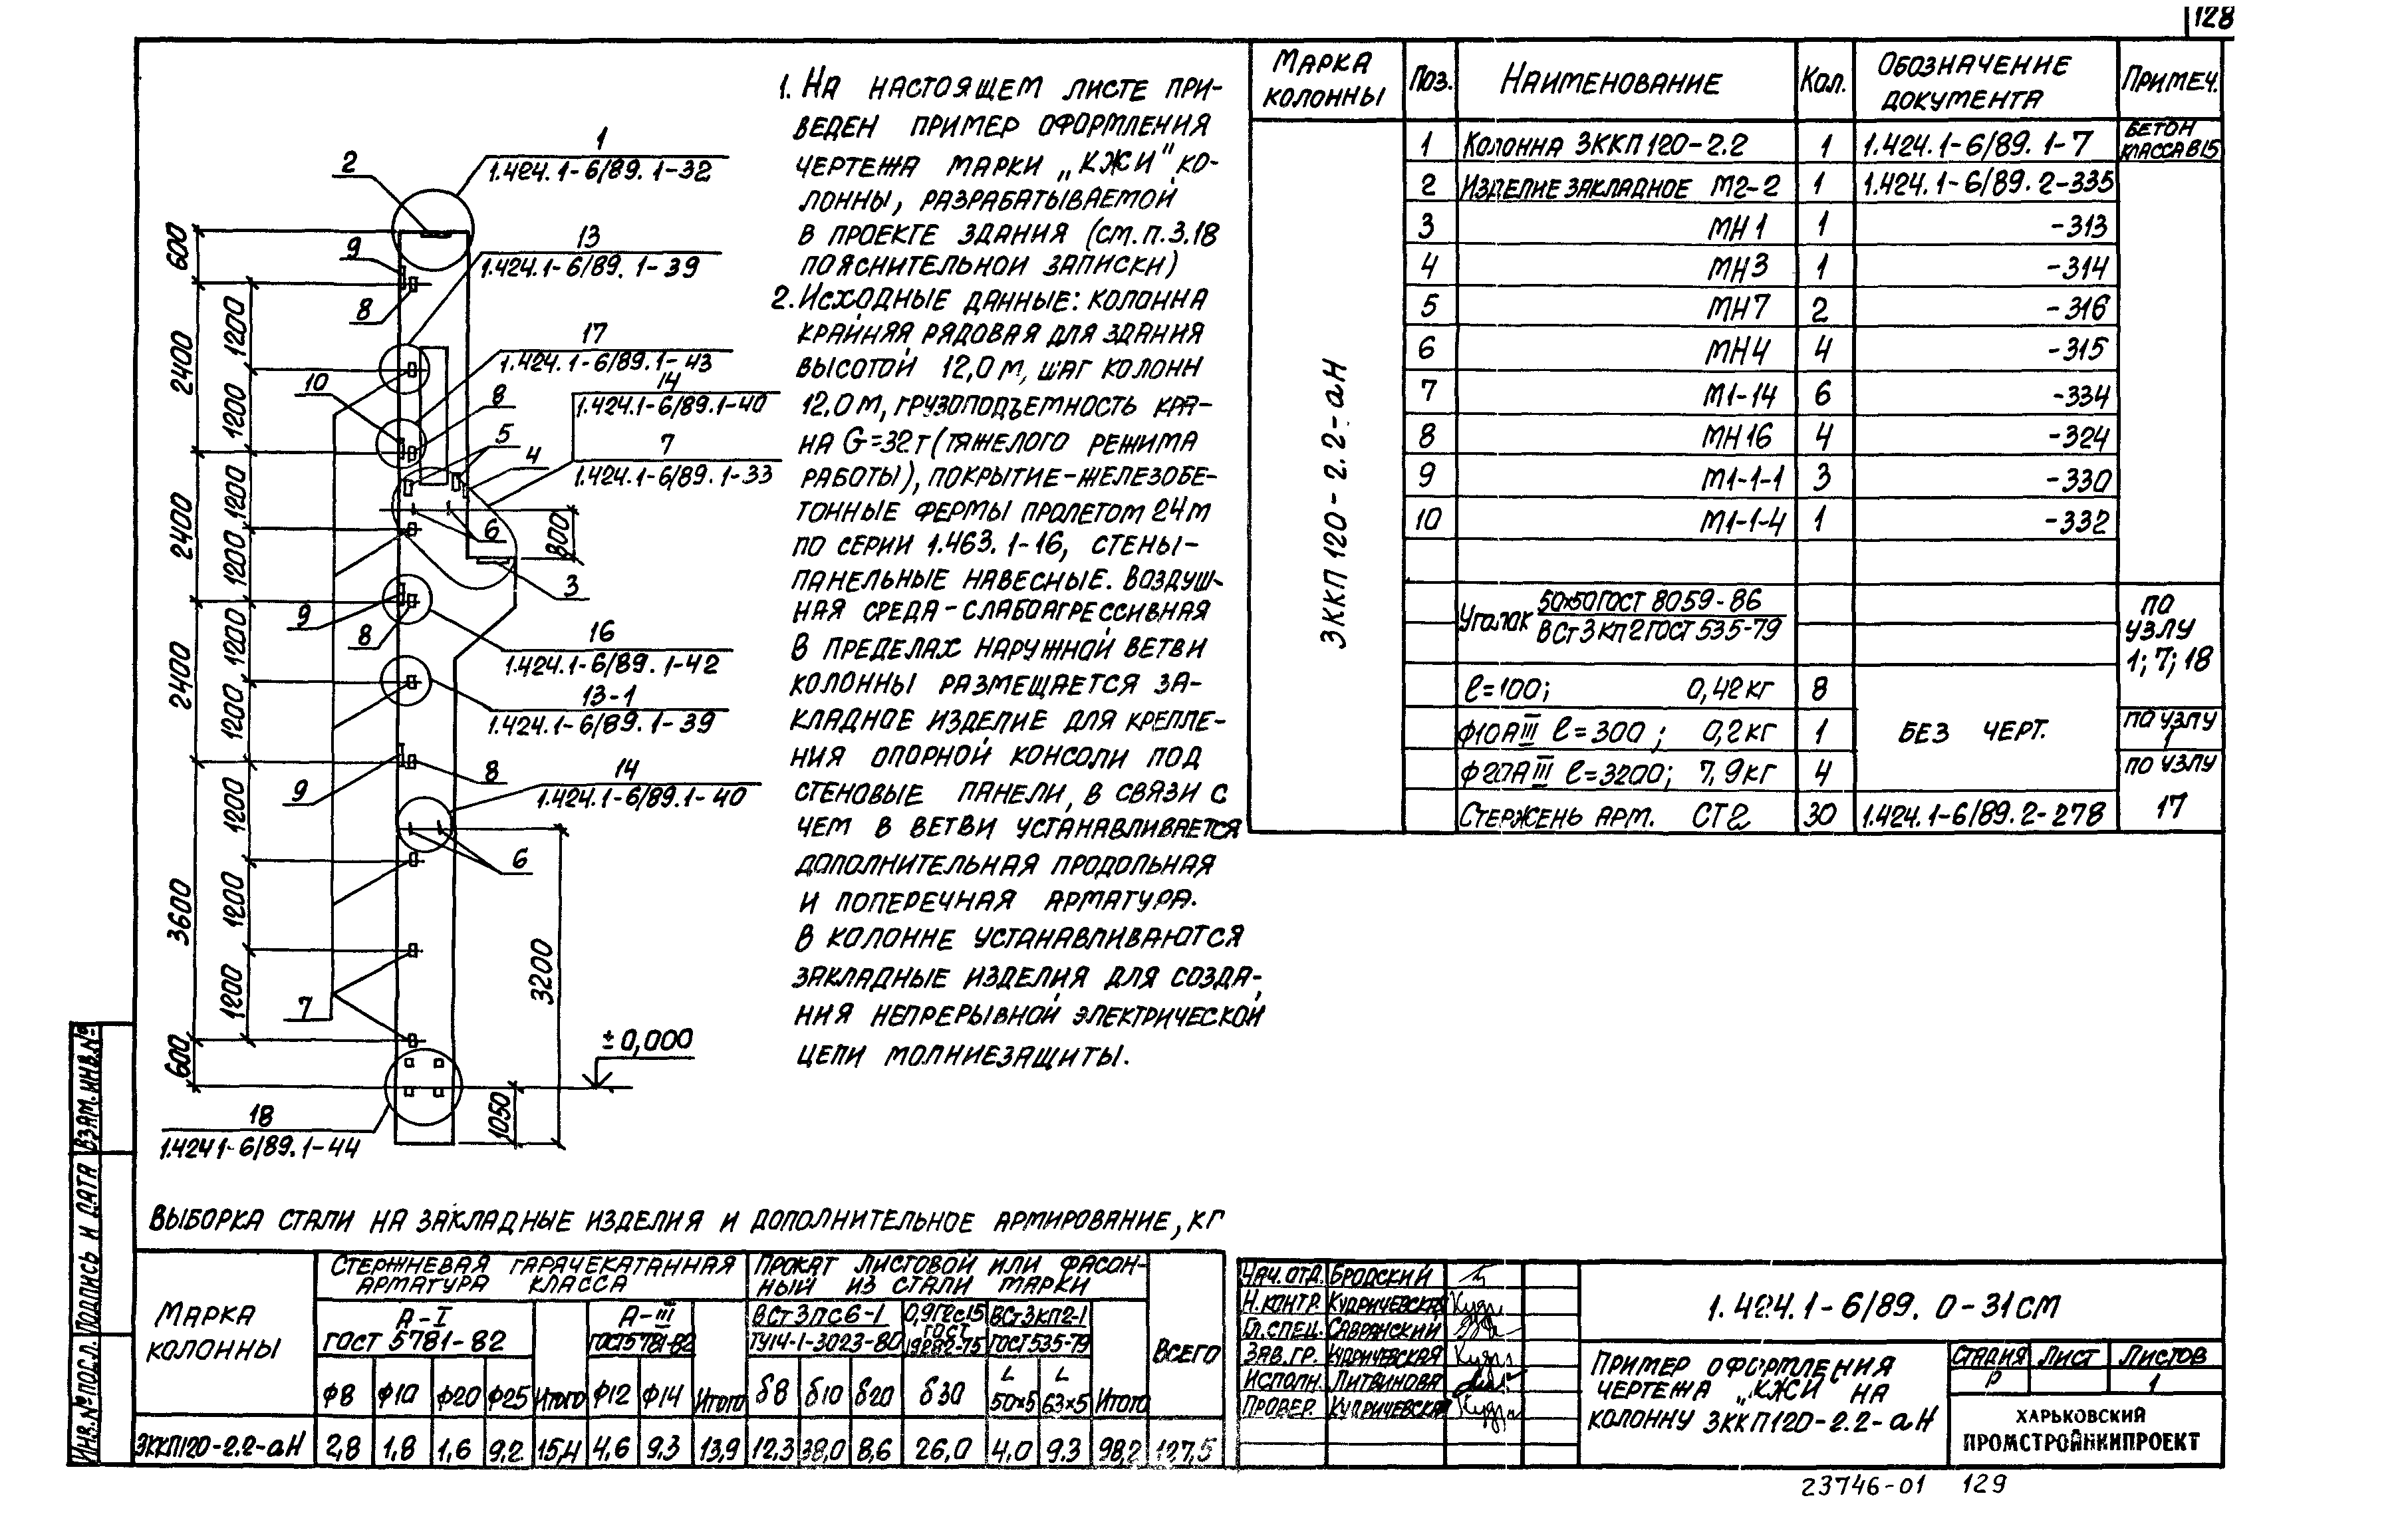 128
1. На настоящем листе при-
веден пример оформления
чертежа марки „КЖИ" ко-
лонны, разрабатываемой
в проекте здания (см. п. 3.18
пояснительной записки)
2. Исходные данные: колонна
крайняя рядовая для здания
высотой 12,0 м, шаг колонн
12.0 м, грузоподъемность кра-
на G=32т (тяжелого режима
работы), покрытие-железобе-
тонные фермы пролетом 24м
по серии 1.463.1-16, стены-
панельные навесные. Воздуш-
ная среда-слабоагрессивная
В пределах наружной ветви
колонны размещается за-
кладное изделие для крепле-
ния опорной консоли под
стеновые панели, в связи с
чем в ветви устанавливается
дополнительная продольная
и поперечная арматура.
В колонне устанавливаются
закладные изделия для созда-
ния непрерывной электрической
цепи молниезащиты.
1
1.424.1-6/89.1-32
2
13
1.424.1-6/89.1-39
9
8
17
1.424.1-6/89.1-43
14
1.424.1-6/89.1-40
10
8
5
7
1.424.1-6/89.1-33
4
6
800
3
9
8
16
1.424.1-6/89.1-42
13-1
1.424.1-6/89.1-39
8
9
14
1.424.1-6/89.1-40
6
7
3200
±0,000
1050
18
1.424 1-6/89.1-44
600
2400
2400
2400
3600
600
1200
1200
1200
1200
1200
1200
1200
1200
1200
Марка колонны Поз. Наименование Кол. Обозначение документа Примеч.
3ККП 120-2.2-аН
1 Колонна 3ККП120-2.2 1 1.424.1-6/89.1-7 бетон класса В15
2 Изделие закладное М2-2 1 1.424.1-6/89.2-335
3 МН1 1 -313
4 МН3 1 -314
5 МН7 2 -316
6 МН4 4 -315
7 М1-14 6 -334
8 МН16 4 -324
9 М1-1-1 3 -330
10 М1-1-4 1 -332
Уголок 50х50 ГОСТ 8059-86
ВСт3кп2 ГОСТ 535-79
по узлу 1; 7; 18
ℓ=100; 0,42кг 8
Ф10АIII ℓ=300; 0,2кг 1 без черт. по узлу 1
Ф20АIII ℓ=3200; 7,9кг 4 по узлу 17
Стержень арм. СТ2 30 1.424.1-6/89.2-278
Выборка стали на закладные изделия и дополнительное армирование, кг
Марка колонны
Стержневая гарячекатанная арматура класса
Прокат листовой или фасонный из стали марки
Всего
А-I ГОСТ 5781-82
А-III ГОСТ5781-82
ВСт3пс6-1 ТУ14-1-3023-80
0,9Г2с15 ГОСТ 19282-75
ВСт3кп2-1 ГОСТ535-79
Ф8 Ф10 Ф20 Ф25 Итого Ф12 Ф14 Итого δ8 δ10 δ20 δ30 L 50х5 L 63х5 Итого
3ККП120-2.2-аН 2,8 1,8 1,6 9,2 15,4 4,6 9.3 13,9 12,3 38,0 8,6 26,0 4,0 9.3 98,2 127,5
Нач. отд. Бродский
Н. контр. Кудричевская
Гл. спец. Савранский
Зав. гр. Кудричевская
Исполн. Литвинова
Провер. Кудричевская
1.424.1-6/89.0-31СМ
Пример оформления
чертежа „КЖИ" на
колонну 3ККП120-2.2-аН
Стадия Лист Листов
Р 1
Харьковский
ПРОМСТРОЙНИИПРОЕКТ
Инв.№ подл. Подпись и дата Взам.инв.№
23746-01 129